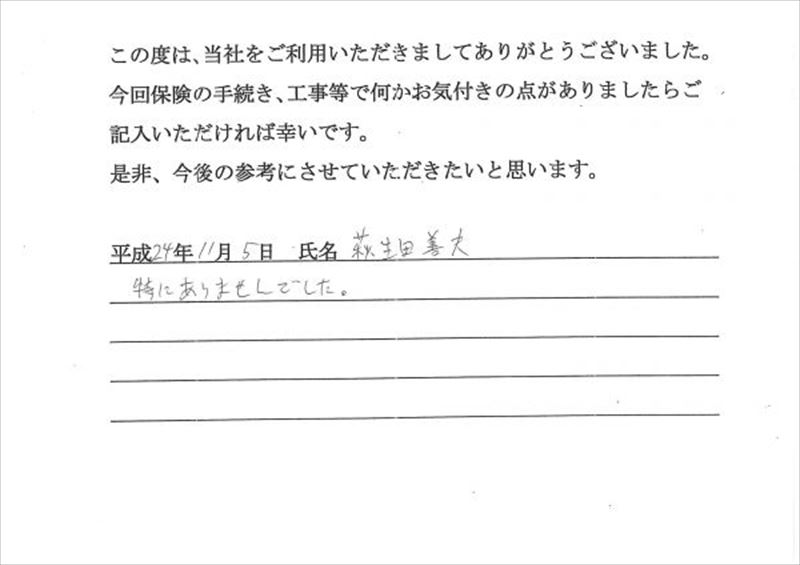 この度は、当社をご利用いただきましてありがとうございました。
今回保険の手続き、工事等で何かお気付きの点がありましたらご
記入いただければ幸いです。
是非、今後の参考にさせていただきたいと思います。
平成24年11月5日 氏名 萩生田善夫
特にありませんでした。